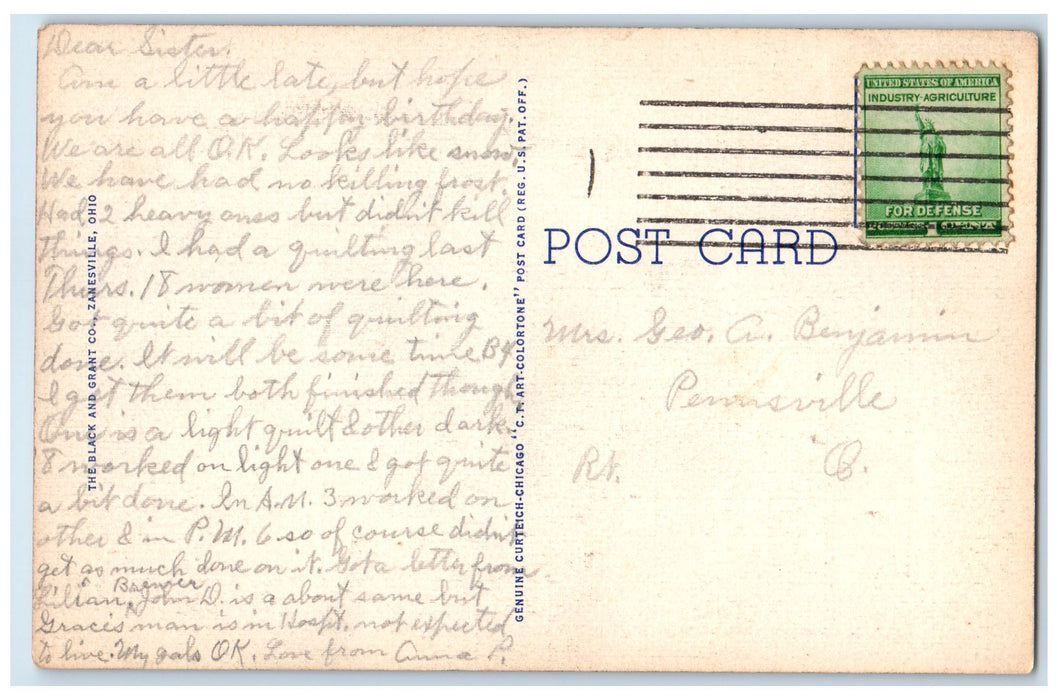 Dear Sister.
Am a little late, but hope
you have a happy birthday.
We are all O.K. Looks like snow.
We have had no killing frost.
Had 2 heavy ones but didn't kill
things. I had a quilting last
Thurs. 18 women were here.
Got quite a bit of quilting
done. It will be some time B4
I get them both finished though
One is a light quilt & other dark.
8 worked on light one & got quite
a bit done. In A.M. 3 worked on
other & in P.M. 6 so of course didn't
get as much done on it. Got a letter from
Lilian Brewer, John D. is a about same but
Grace's man is in Hospt. not expected
to live. My gals OK. Love from Anna P.
THE BLACK AND GRANT CO., ZANESVILLE, OHIO
GENUINE CURTEICH-CHICAGO "C.T. ART-COLORTONE" POST CARD (REG. U.S. PAT. OFF.)
UNITED STATES OF AMERICA
INDUSTRY-AGRICULTURE
FOR DEFENSE
POST CARD
Mrs. Geo. A. Benjamin
Pennsville
Rt. O.